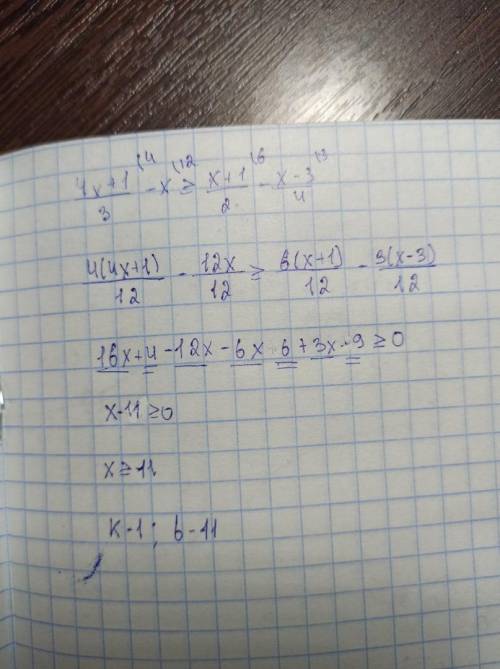 (4x+1)/3 ⁽⁴ - x ⁽¹² ≥ (x+1)/2 ⁽⁶ - (x-3)/4 ⁽³
4(4x+1)/12 - 12x/12 ≥ 6(x+1)/12 - 3(x-3)/12
16x+4-12x-6x-6+3x-9≥0
x-11≥0
x≥11
к-1; б-11